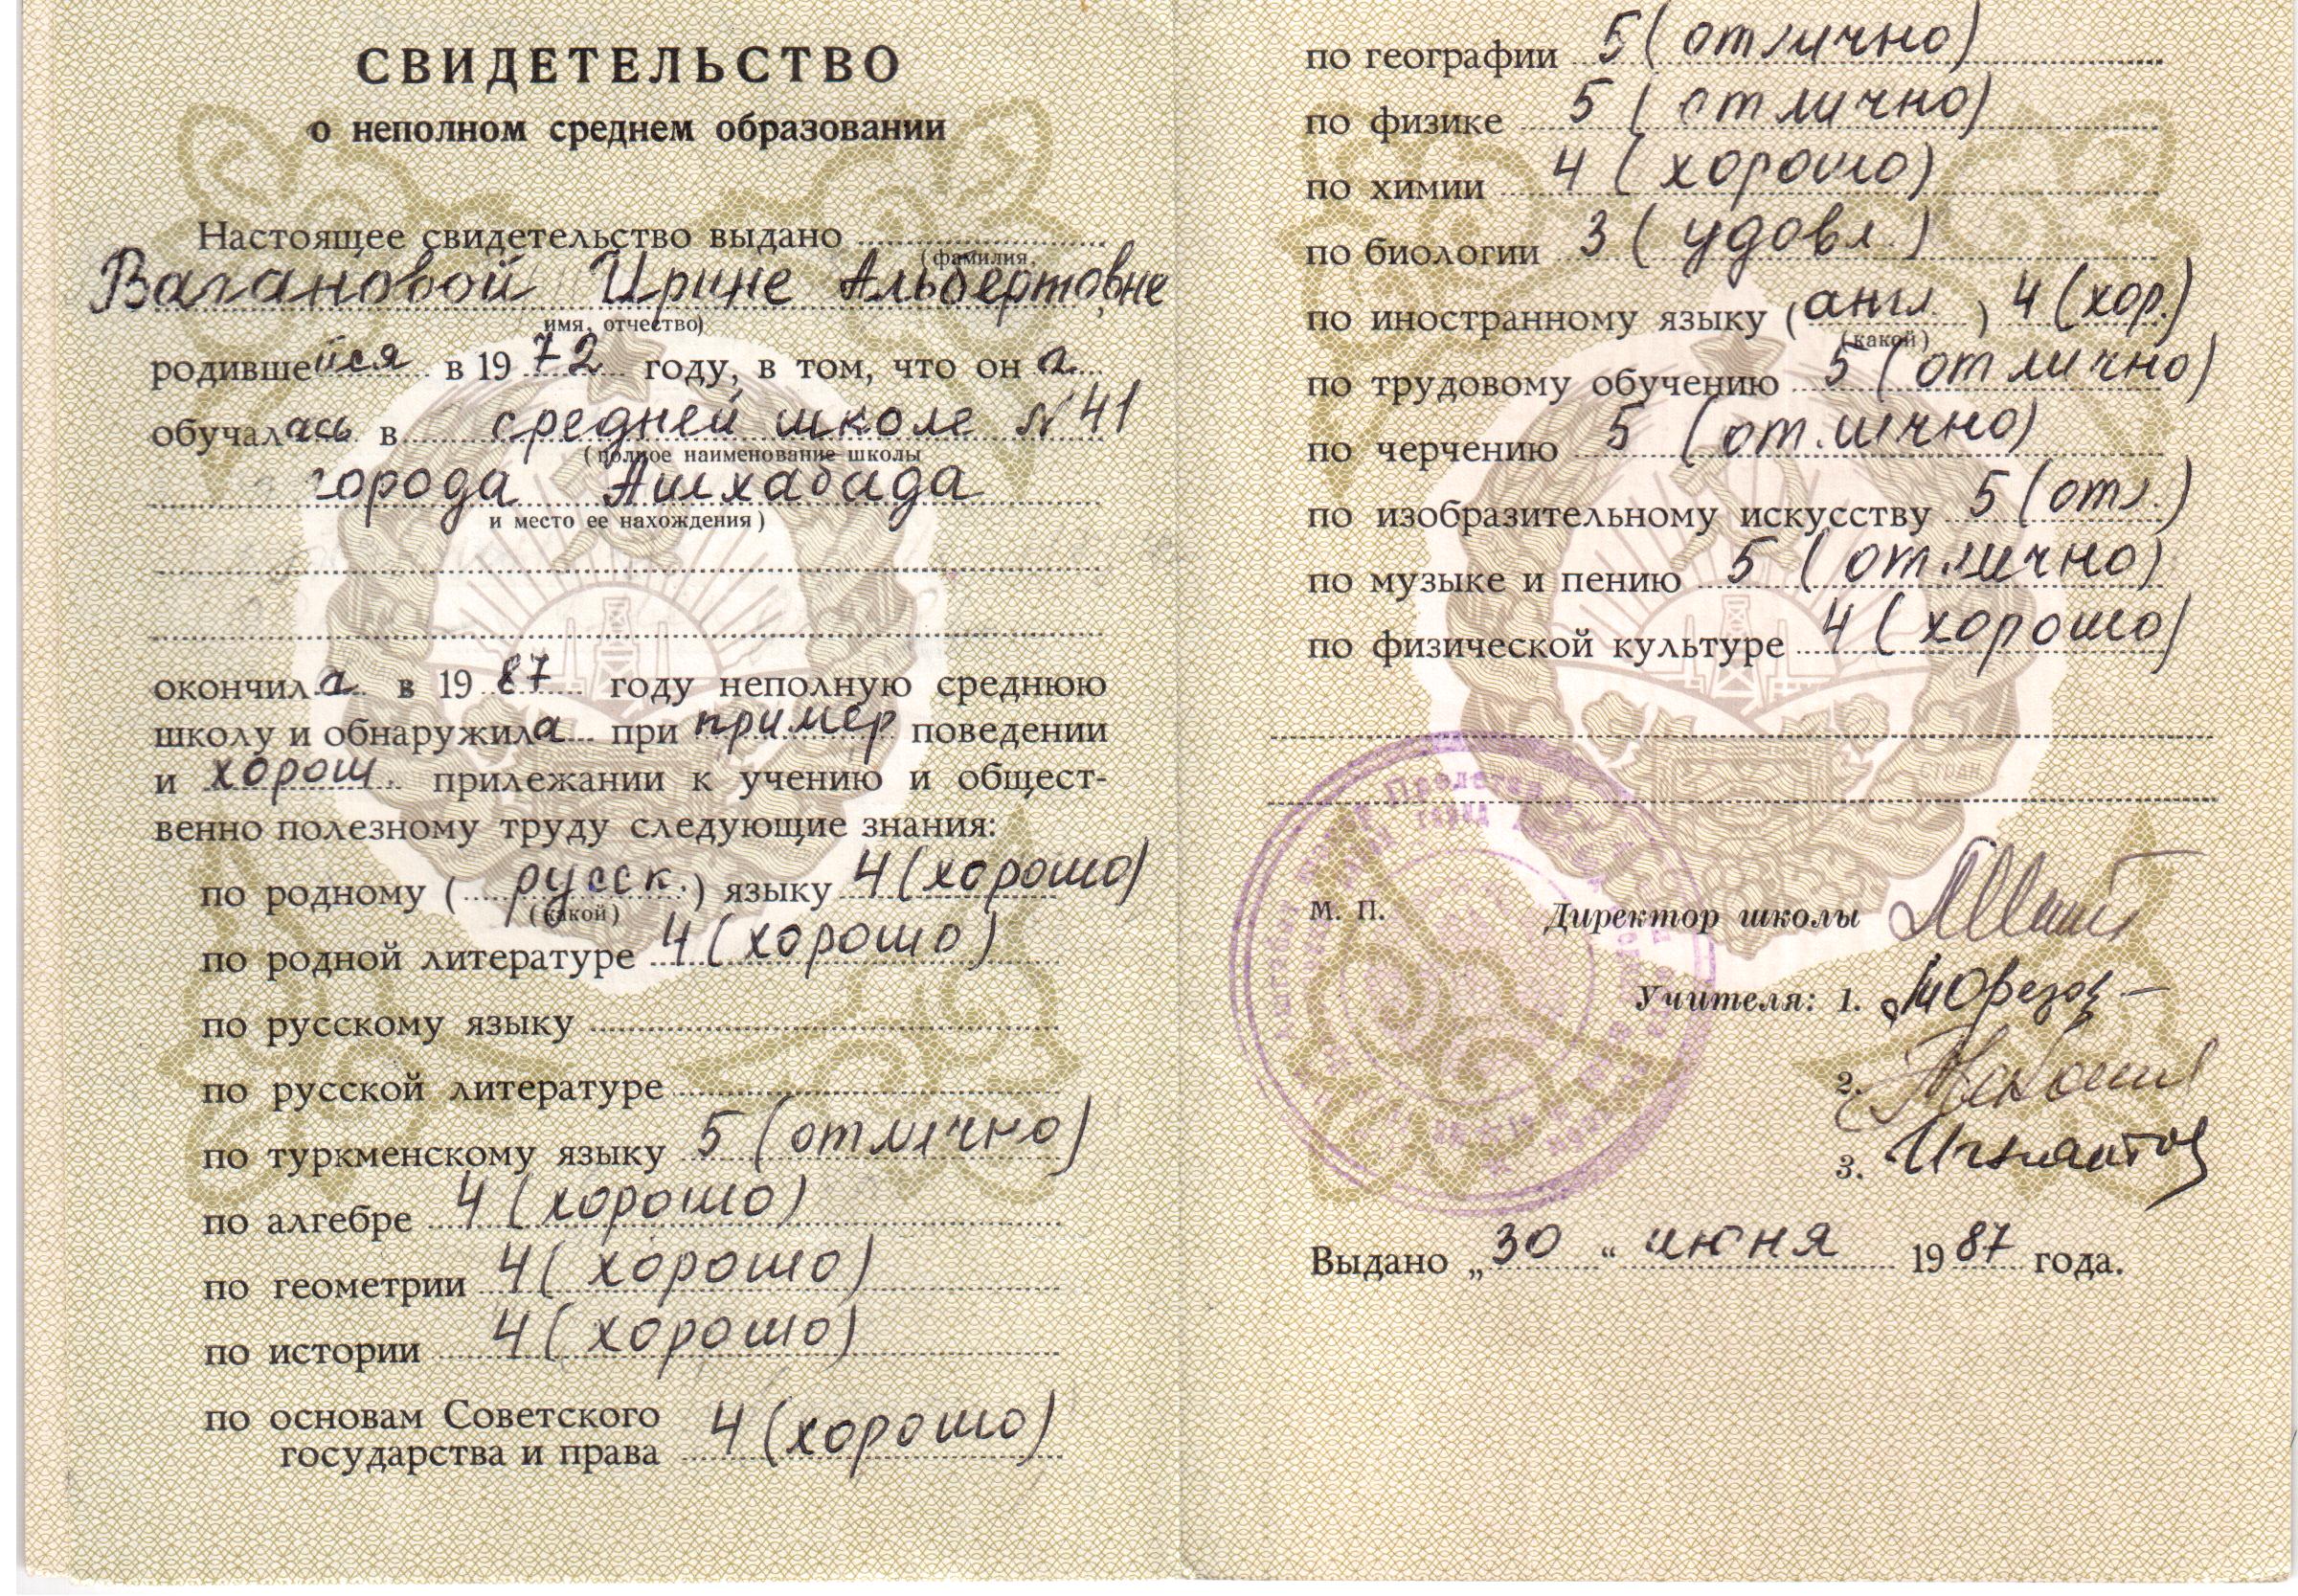 СВИДЕТЕЛЬСТВО
о неполном среднем образовании
Настоящее свидетельство выдано
(фамилия,
Вагановой Ирине Альбертовне
имя, отчество)
родившейся в 1972 году, в том, что она
обучалась в средней школе №41
(полное наименование школы
города Ашхабада
и место ее нахождения)
окончила в 1987 году неполную среднюю
школу и обнаружила при пример поведении
и хорош. прилежании к учению и общест-
венно полезному труду следующие знания:
по родному (русск.) языку 4 (хорошо)
(какой)
по родной литературе 4 (хорошо)
по русскому языку
по русской литературе
по туркменскому языку 5 (отлично)
по алгебре 4 (хорошо)
по геометрии 4 (хорошо)
по истории 4 (хорошо)
по основам Советского
государства и права 4 (хорошо)
по географии 5 (отлично)
по физике 5 (отлично)
по химии 4 (хорошо)
по биологии 3 (удовл.)
по иностранному языку (англ.) 4 (хор.)
(какой)
по трудовому обучению 5 (отлично)
по черчению 5 (отлично)
по изобразительному искусству 5 (отл.)
по музыке и пению 5 (отлично)
по физической культуре 4 (хорошо)
М. П. Директор школы
Учителя: 1.
2.
3.
Выдано „30“ июня 1987 года.